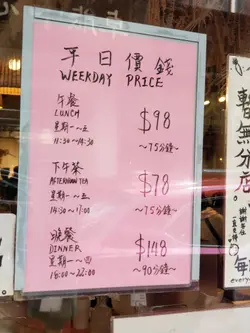 平日價錢
WEEKDAY PRICE
午餐
LUNCH
星期一~五
11:30~14:30
$98
~75分鐘~
下午茶
AFTERNOON TEA
星期一~五
14:30~17:00
$78
~75分鐘~
晚餐
DINNER
星期一~四
18:00~22:00
$148
~90分鐘~
暫無分店。
謝謝各位
every